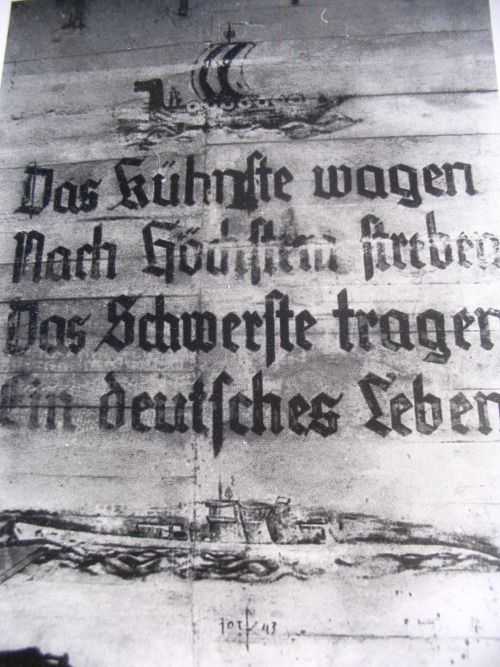 Das Kühnste wagen
Nach Höchstem streben
Das Schwerste tragen
Ein deutsches Leben